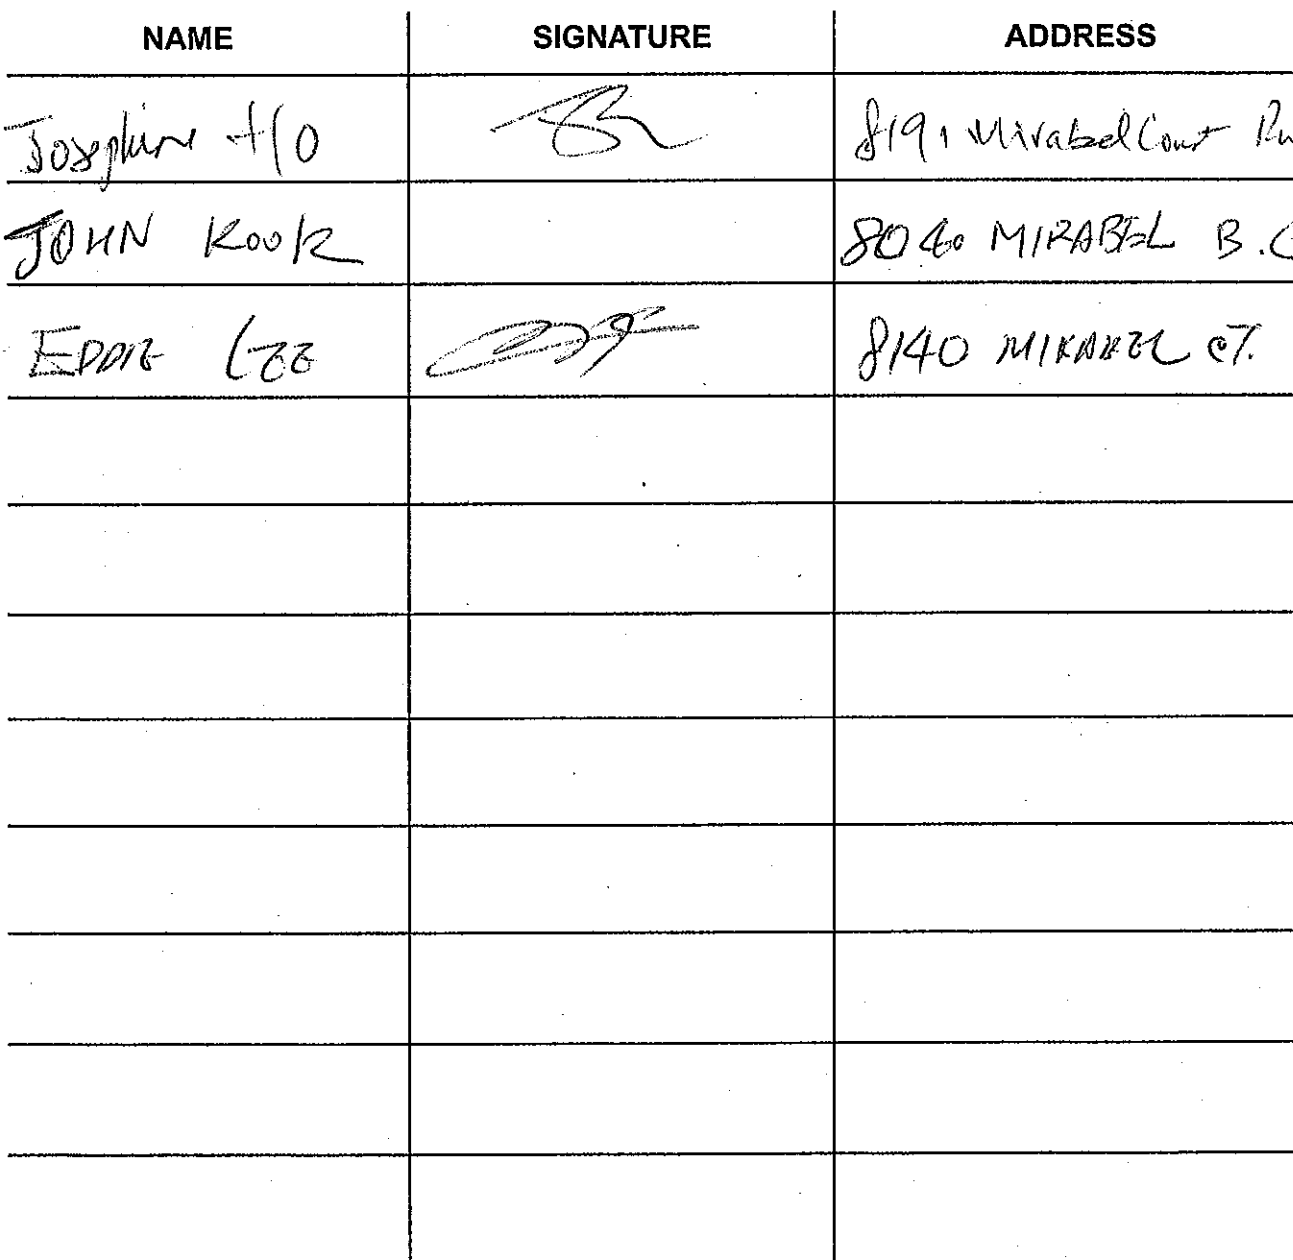 NAME SIGNATURE ADDRESS
Josephine Ho 8191 Mirabel Court
JOHN KOOK 8040 MIRABEL B.C
EDDIE LEE 8140 MIRABEL CT.